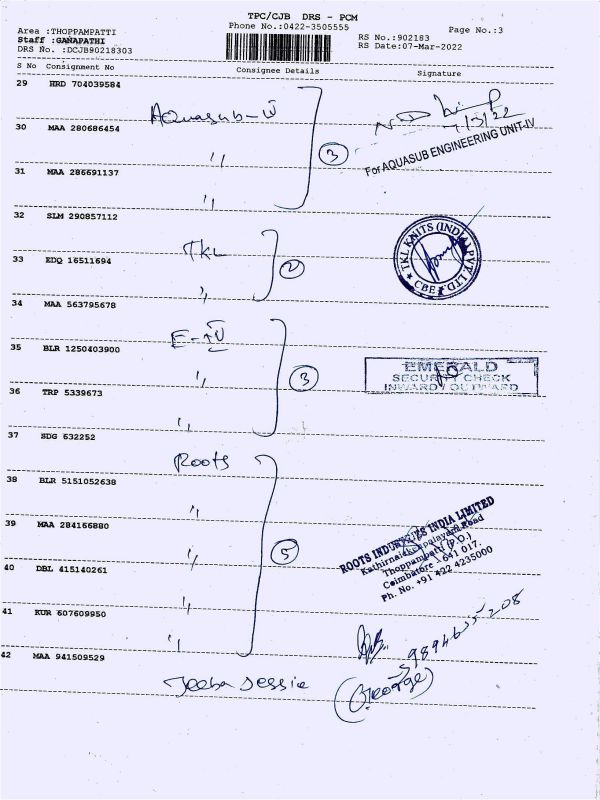 TPC/CJB DRS - PCM
Area :THOPPAMPATTI
Phone No.:0422-3505555
Page No.:3
Staff :GANAPATHI
RS No.:902183
DRS No. :DCJB90218303
RS Date:07-Mar-2022
S No Consignment No Consignee Details Signature
29 HRD 704039584
Aquasub-IV
30 MAA 280686454
"
3
7/3/22
For AQUASUB ENGINEERING UNIT-IV
31 MAA 286691137
"
32 SLM 290857112
TKL
33 EDQ 16511694
"
2
TKL KNITS (INDIA) PVT. LTD.
★ CBE ★
34 MAA 563795678
E-IV
35 BLR 1250403900
"
3
EMERALD
SECURITY CHECK
INWARD / OUTWARD
36 TRP 5339673
"
37 SDG 632252
Roots
38 BLR 5151052638
"
39 MAA 284166880
"
5
ROOTS INDUSTRIES INDIA LIMITED
Kathirnaickenpalayam Road
Thoppampatti (P.O.)
Coimbatore - 641 017.
Ph. No. +91 422 4235000
40 DBL 415140261
"
41 KUR 607609950
"
42 MAA 941509529
Jeeba Jessie
9894635208
(George)